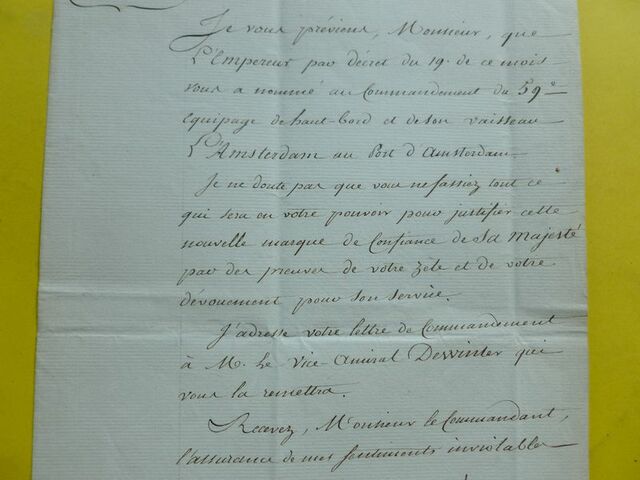 Je vous préviens, Monsieur, que
L'Empereur par décret du 19. de ce mois
vous a nommé au Commandement du 59e
Equipage de haut-bord et de son vaisseau
L'Amsterdam au Port d'Amsterdam.
Je ne doute pas que vous ne fassiez tout ce
qui sera en votre pouvoir pour justifier cette
nouvelle marque de Confiance de Sa Majesté
par des preuves de votre Zèle et de votre
dévouement pour son service.
J'adresse votre lettre de Commandement
à M. Le Vice-Amiral Dewinter qui
vous la remettra.
Recevez, Monsieur le Commandant,
l'assurance de mes sentiments inviolables